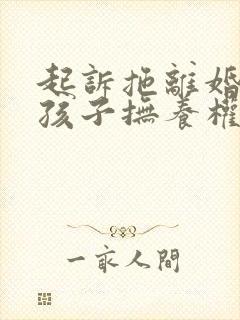 起訴拖離婚
孩子撫養權
一家人間